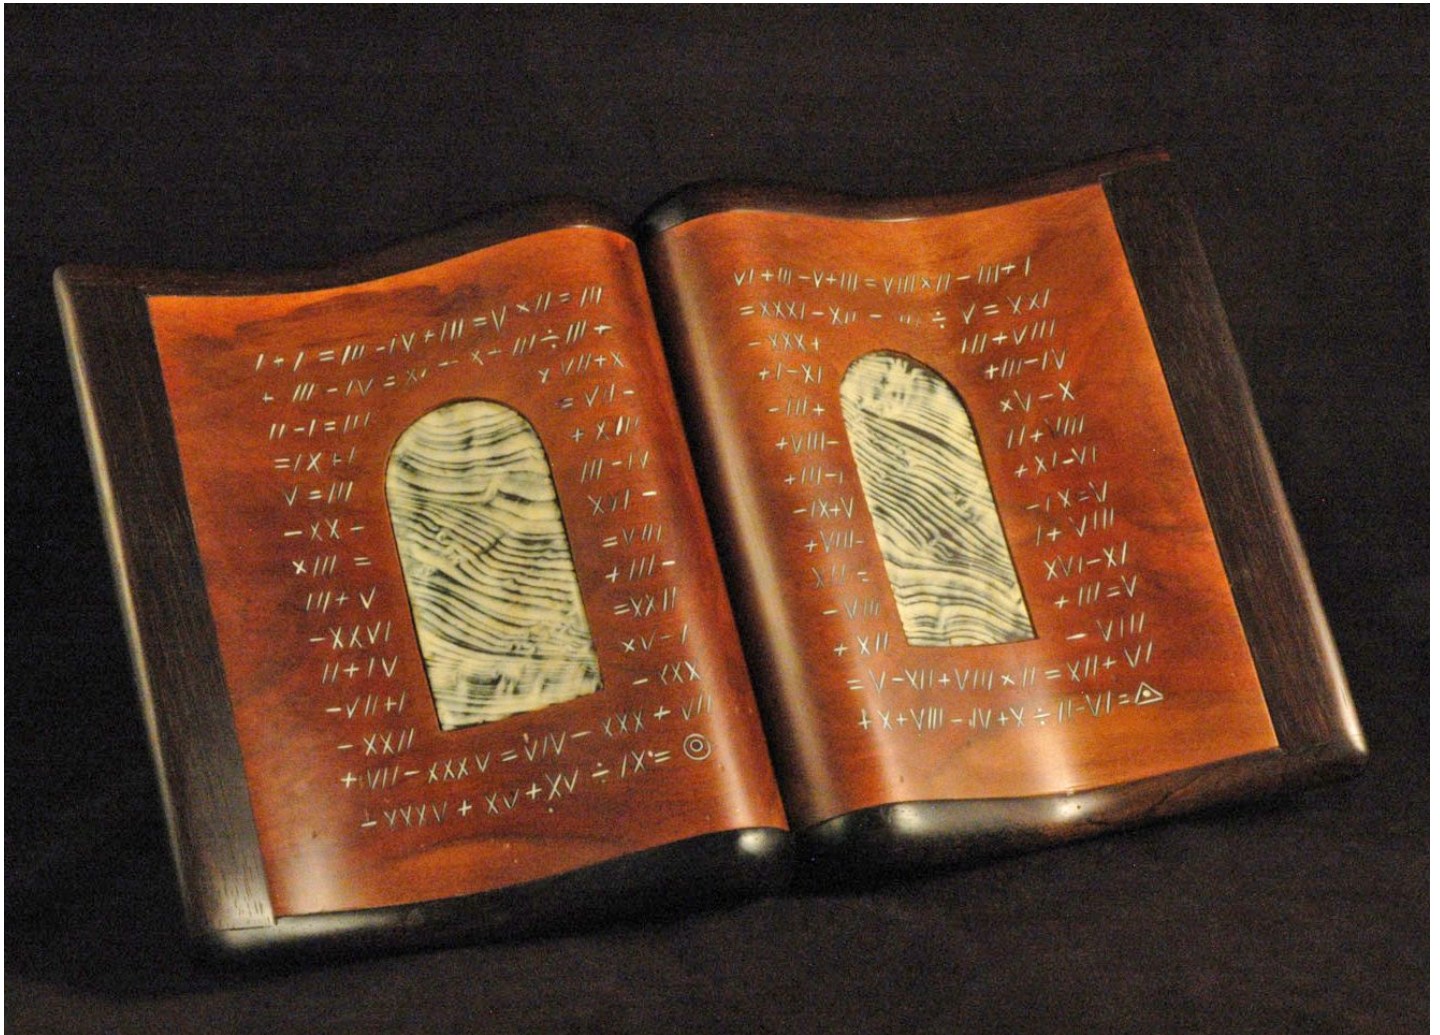 I + I = III - IV + III = V × II = III
+ III - IV = XI - X + III ÷ III +
II - I = III
= IX + I
V = III
- XX -
× III =
III + V
- XXVI
II + IV
- VII + I
- XXII
X VII + X
= VII -
+ XIII
III - IV
XXI -
= VIII
+ III -
= XXII
× V - I
- XXX
+ VII - XXXV = VIV - XXX + VII
- XXXV + XV + XV ÷ IX =
VI + III - V + III = VIIII × II - III + I
= XXXI - XII - ÷ V = XXI
- XXX +
+ I - XI
- III +
+ VIII -
+ III - I
- IX + V
+ VIII -
XII =
- VIII
+ XII
III + VIII
+ III - IV
× V - X
II + VIII
+ XI - VI
- IX = V
I + VIII
XVI - XI
+ III = V
- VIII
= V - XII + VIII × II = XII + VI
+ X + VIII - IV + X ÷ II - VI =